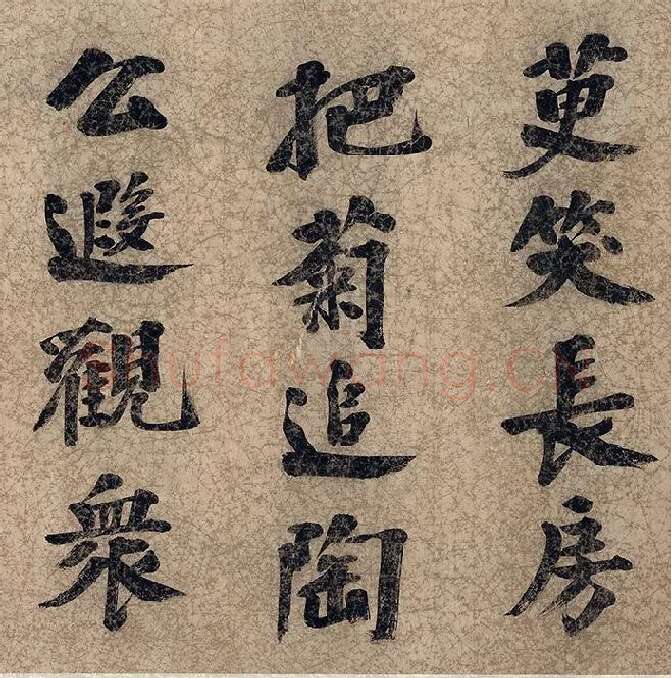 萸笑長房
把菊追陶
公遐觀衆
shufawang.cn